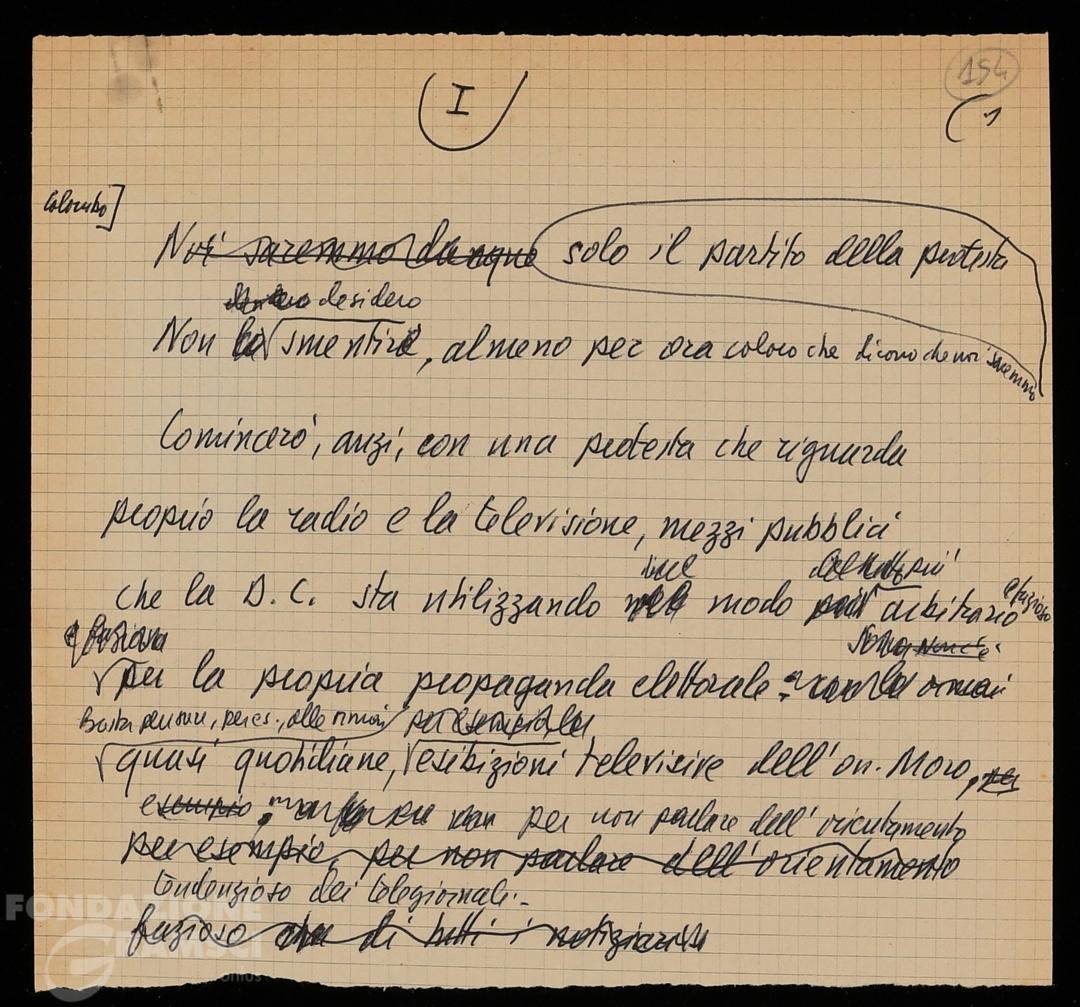 I
154
1
Colombo]
Noi saremmo dunque solo il partito della protesta
desidero
Non smentire, almeno per ora coloro che dicono che noi saremmo
Comincerò, anzi, con una protesta che riguarda
proprio la radio e la televisione, mezzi pubblici
nel più
che la D.C. sta utilizzando modo più arbitrario e fazioso
e fazioso
per la propria propaganda elettorale ormai
Basta pensare, per es., alle ormai per esempio, le
quasi quotidiane, esibizioni televisive dell'on. Moro, per
esempio, per non parlare dell'orientamento
per esempio, per non parlare dell'orientamento
tendenzioso dei telegiornali.
fazioso di tutti i notiziari
FONDAZIONE
GRAMSCI